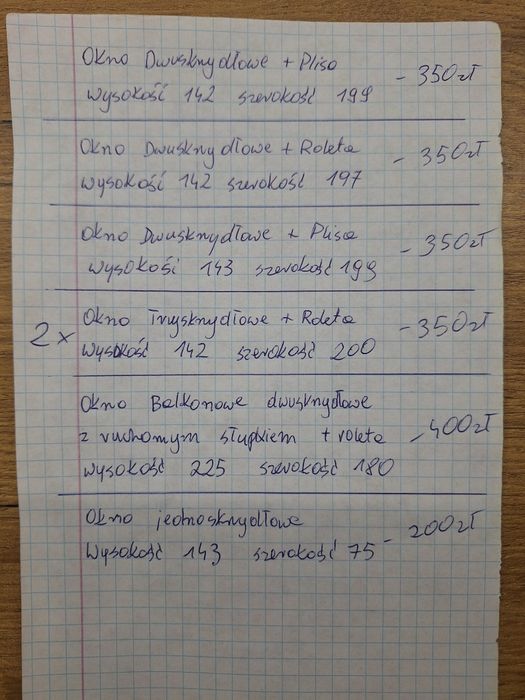 Okno Dwuskrzydłowe + Plisa
wysokość 142 szerokość 199 - 350zł
Okno Dwuskrzydłowe + Roleta
wysokość 142 szerokość 197 - 350zł
Okno Dwuskrzydłowe + Plisa
wysokość 143 szerokość 199 - 350zł
2x Okno Trzyskrzydłowe + Roleta
wysokość 142 szerokość 200 - 350zł
Okno Balkonowe dwuskrzydłowe
z ruchomym słupkiem + roleta - 400zł
wysokość 225 szerokość 180
Okno jednoskrzydłowe
Wysokość 143 szerokość 75 - 200zł